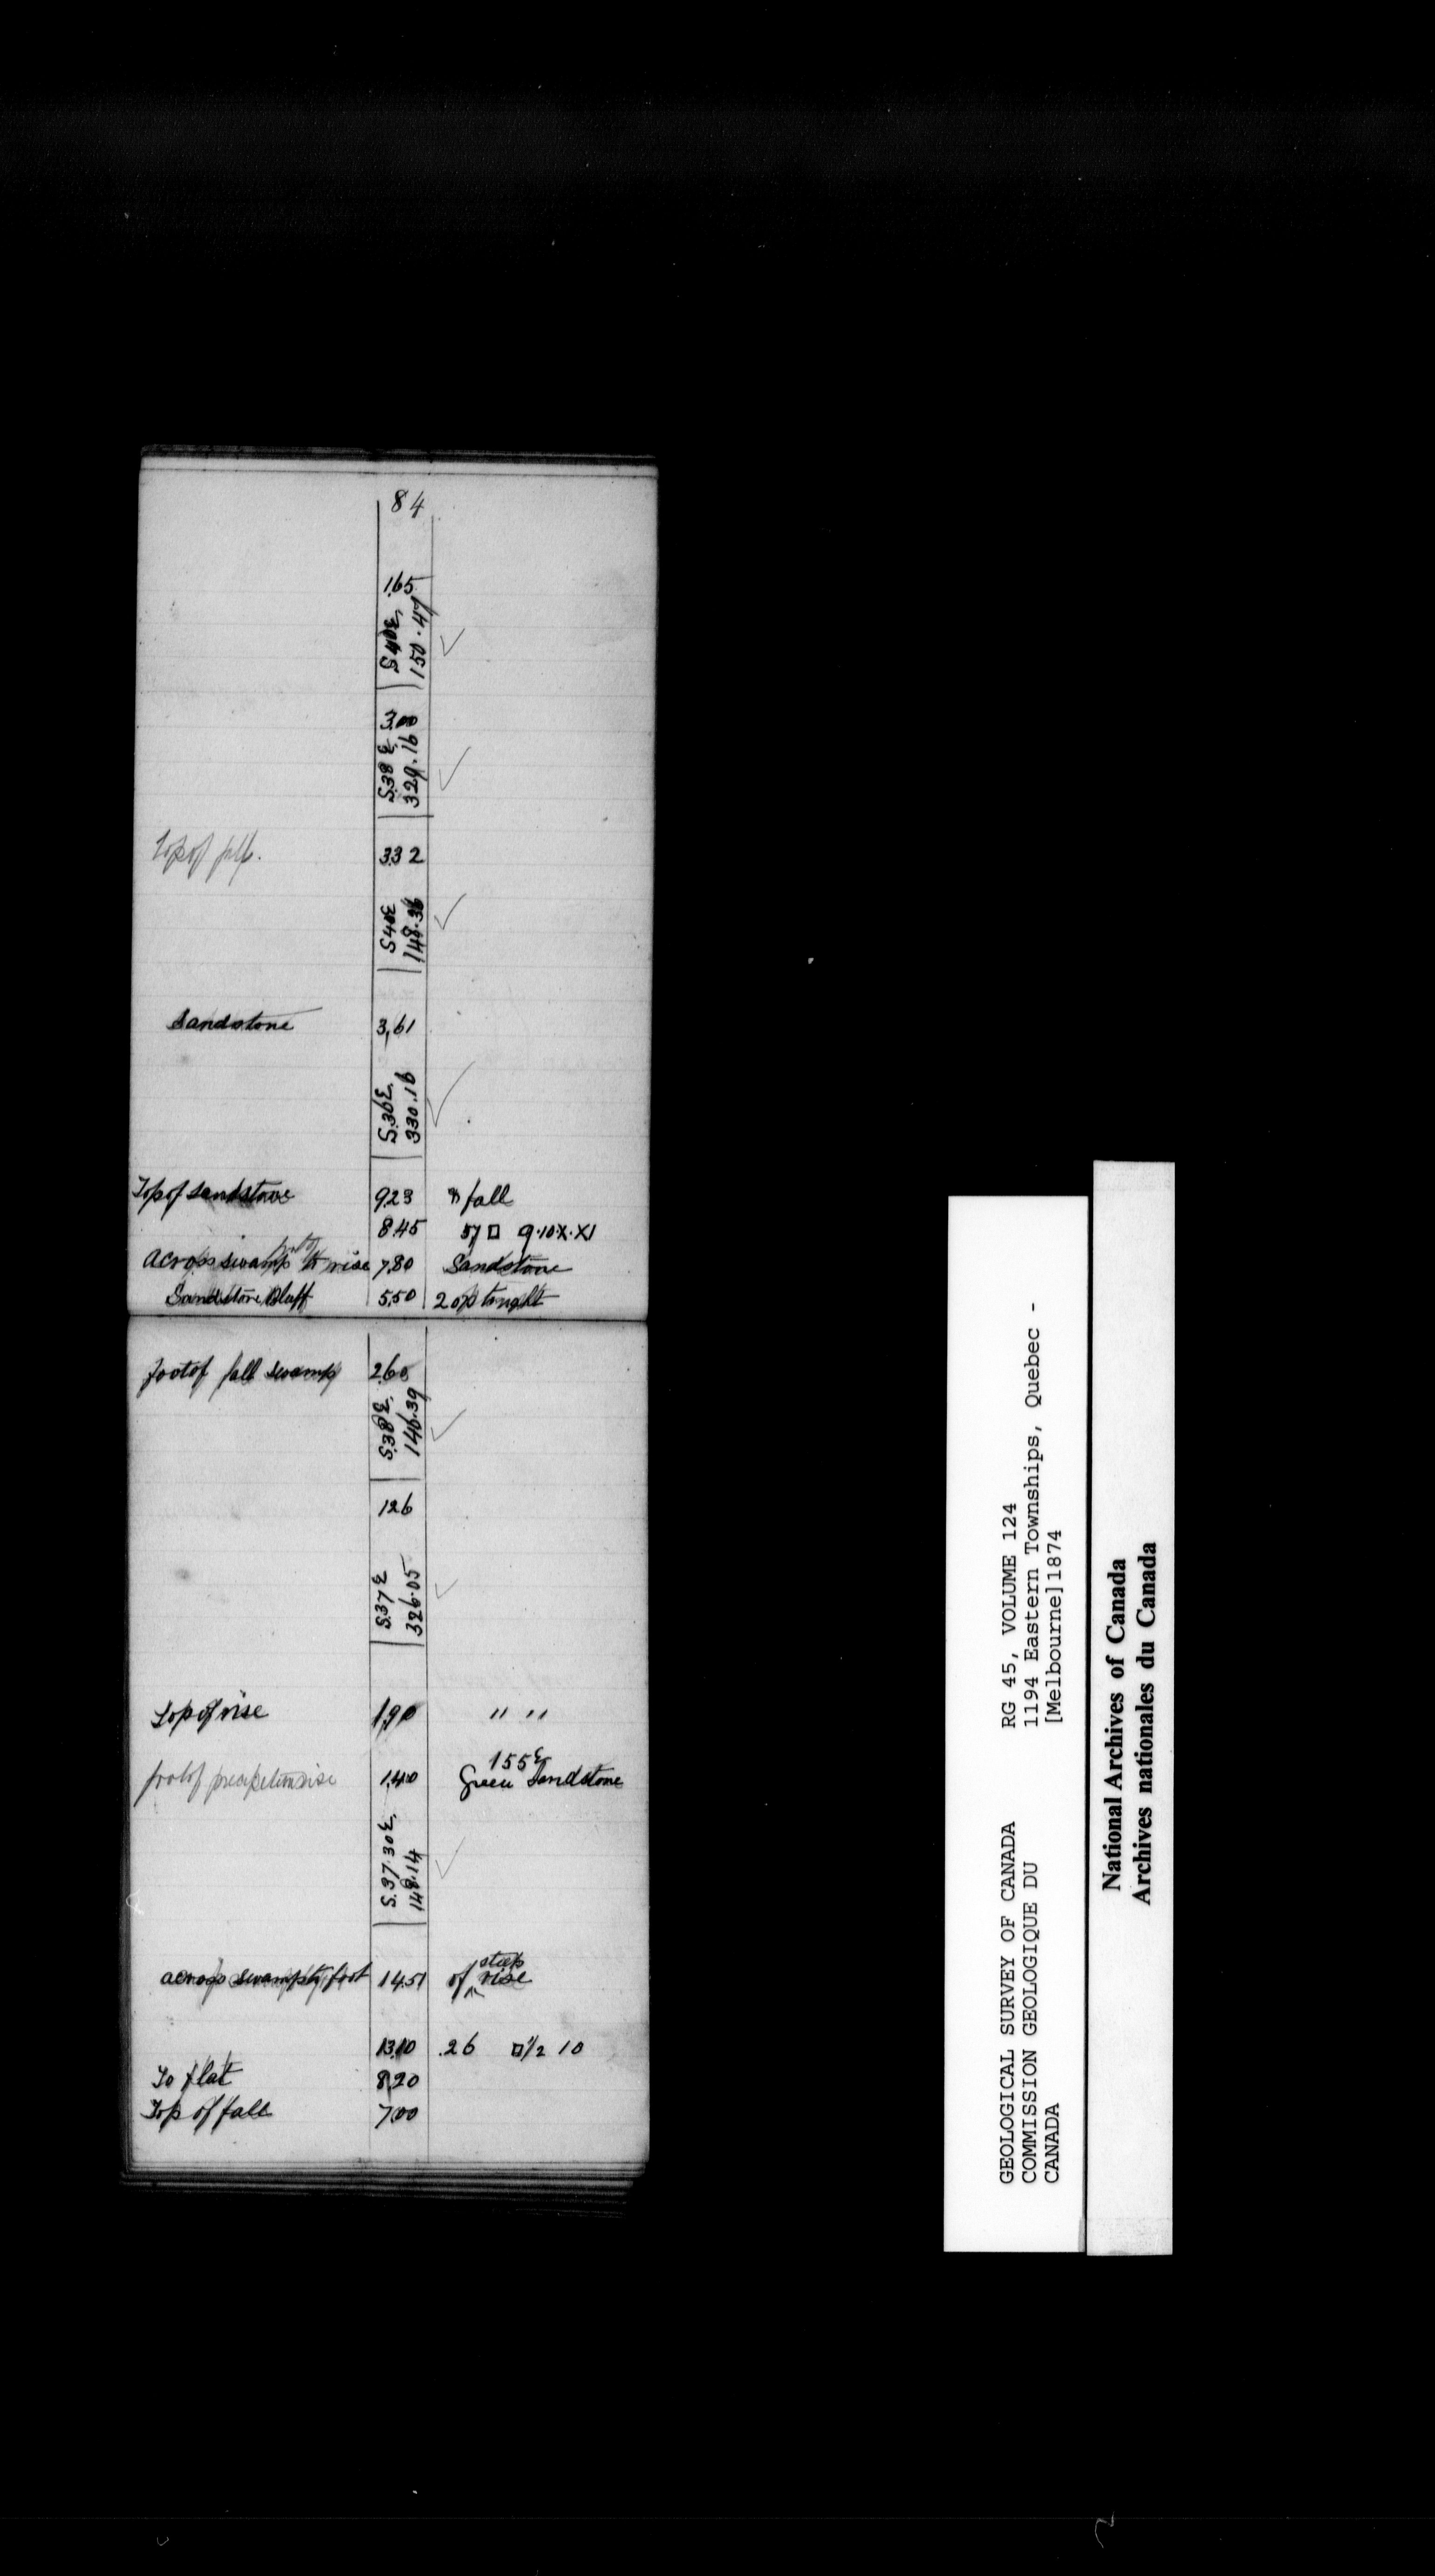 84
1.65
S40E,
150.47
3.00
S.38 E.
329.16
Top of fall.
3.32
S40E
148.36
Sandstone 3,61
S.36E.
330.16
Top of sandstone 9.23 fall
8.45 57 □ 9.10.X.XI
Across swamp to rise 7.80 Sandstone
Sandstone Bluff 5.50 20 p to right
foot of fall swamp 2.60
S.38E.
146.39
1.26
S.37E
326.05
Top of rise 1.90 " "
155E
foot of precipitous rise 1.40 Green Sandstone
S.37.30E.
148.14
steep
across swamp to foot 14.51 of rise
13.10 .26 □ 1/2 10
To flat 8.20
Top of fall 7.00
GEOLOGICAL SURVEY OF CANADA RG 45, VOLUME 124
COMMISSION GEOLOGIQUE DU 1194 Eastern Townships, Quebec -
CANADA [Melbourne]1874
National Archives of Canada
Archives nationales du Canada